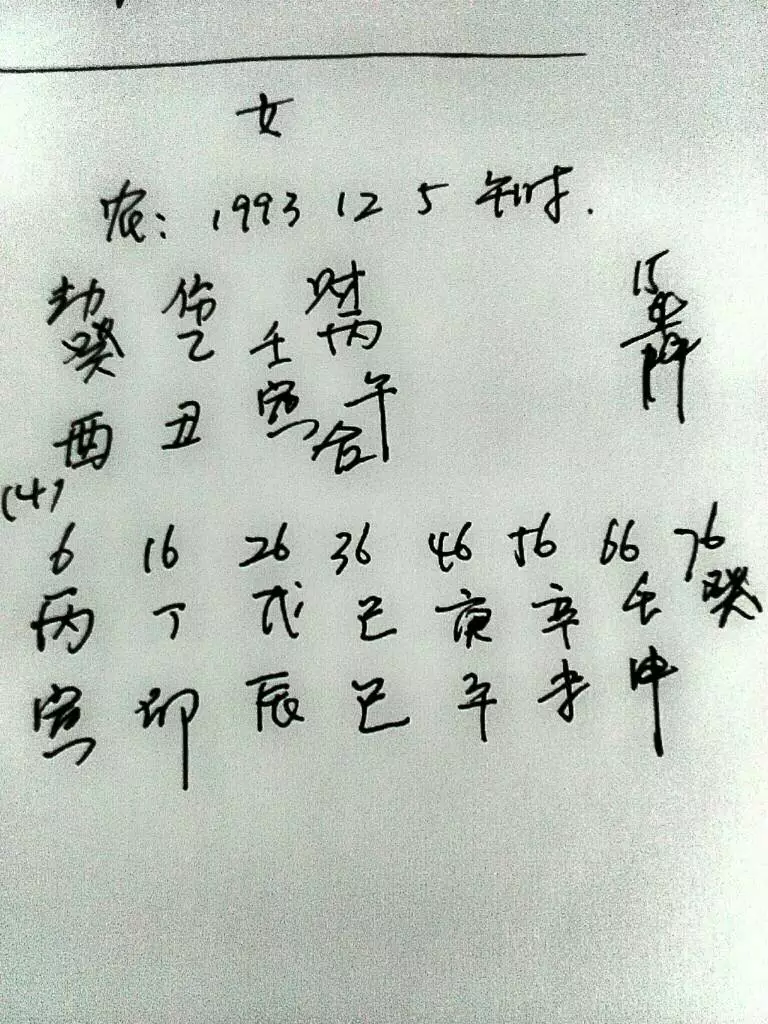 女
农: 1993 12 5 午时.
劫 伤 财
癸 乙 壬 丙
酉 丑 寅 午
合
(4)
6 16 26 36 46 56 66 76
丙 丁 戊 己 庚 辛 壬 癸
寅 卯 辰 巳 午 未 申
15